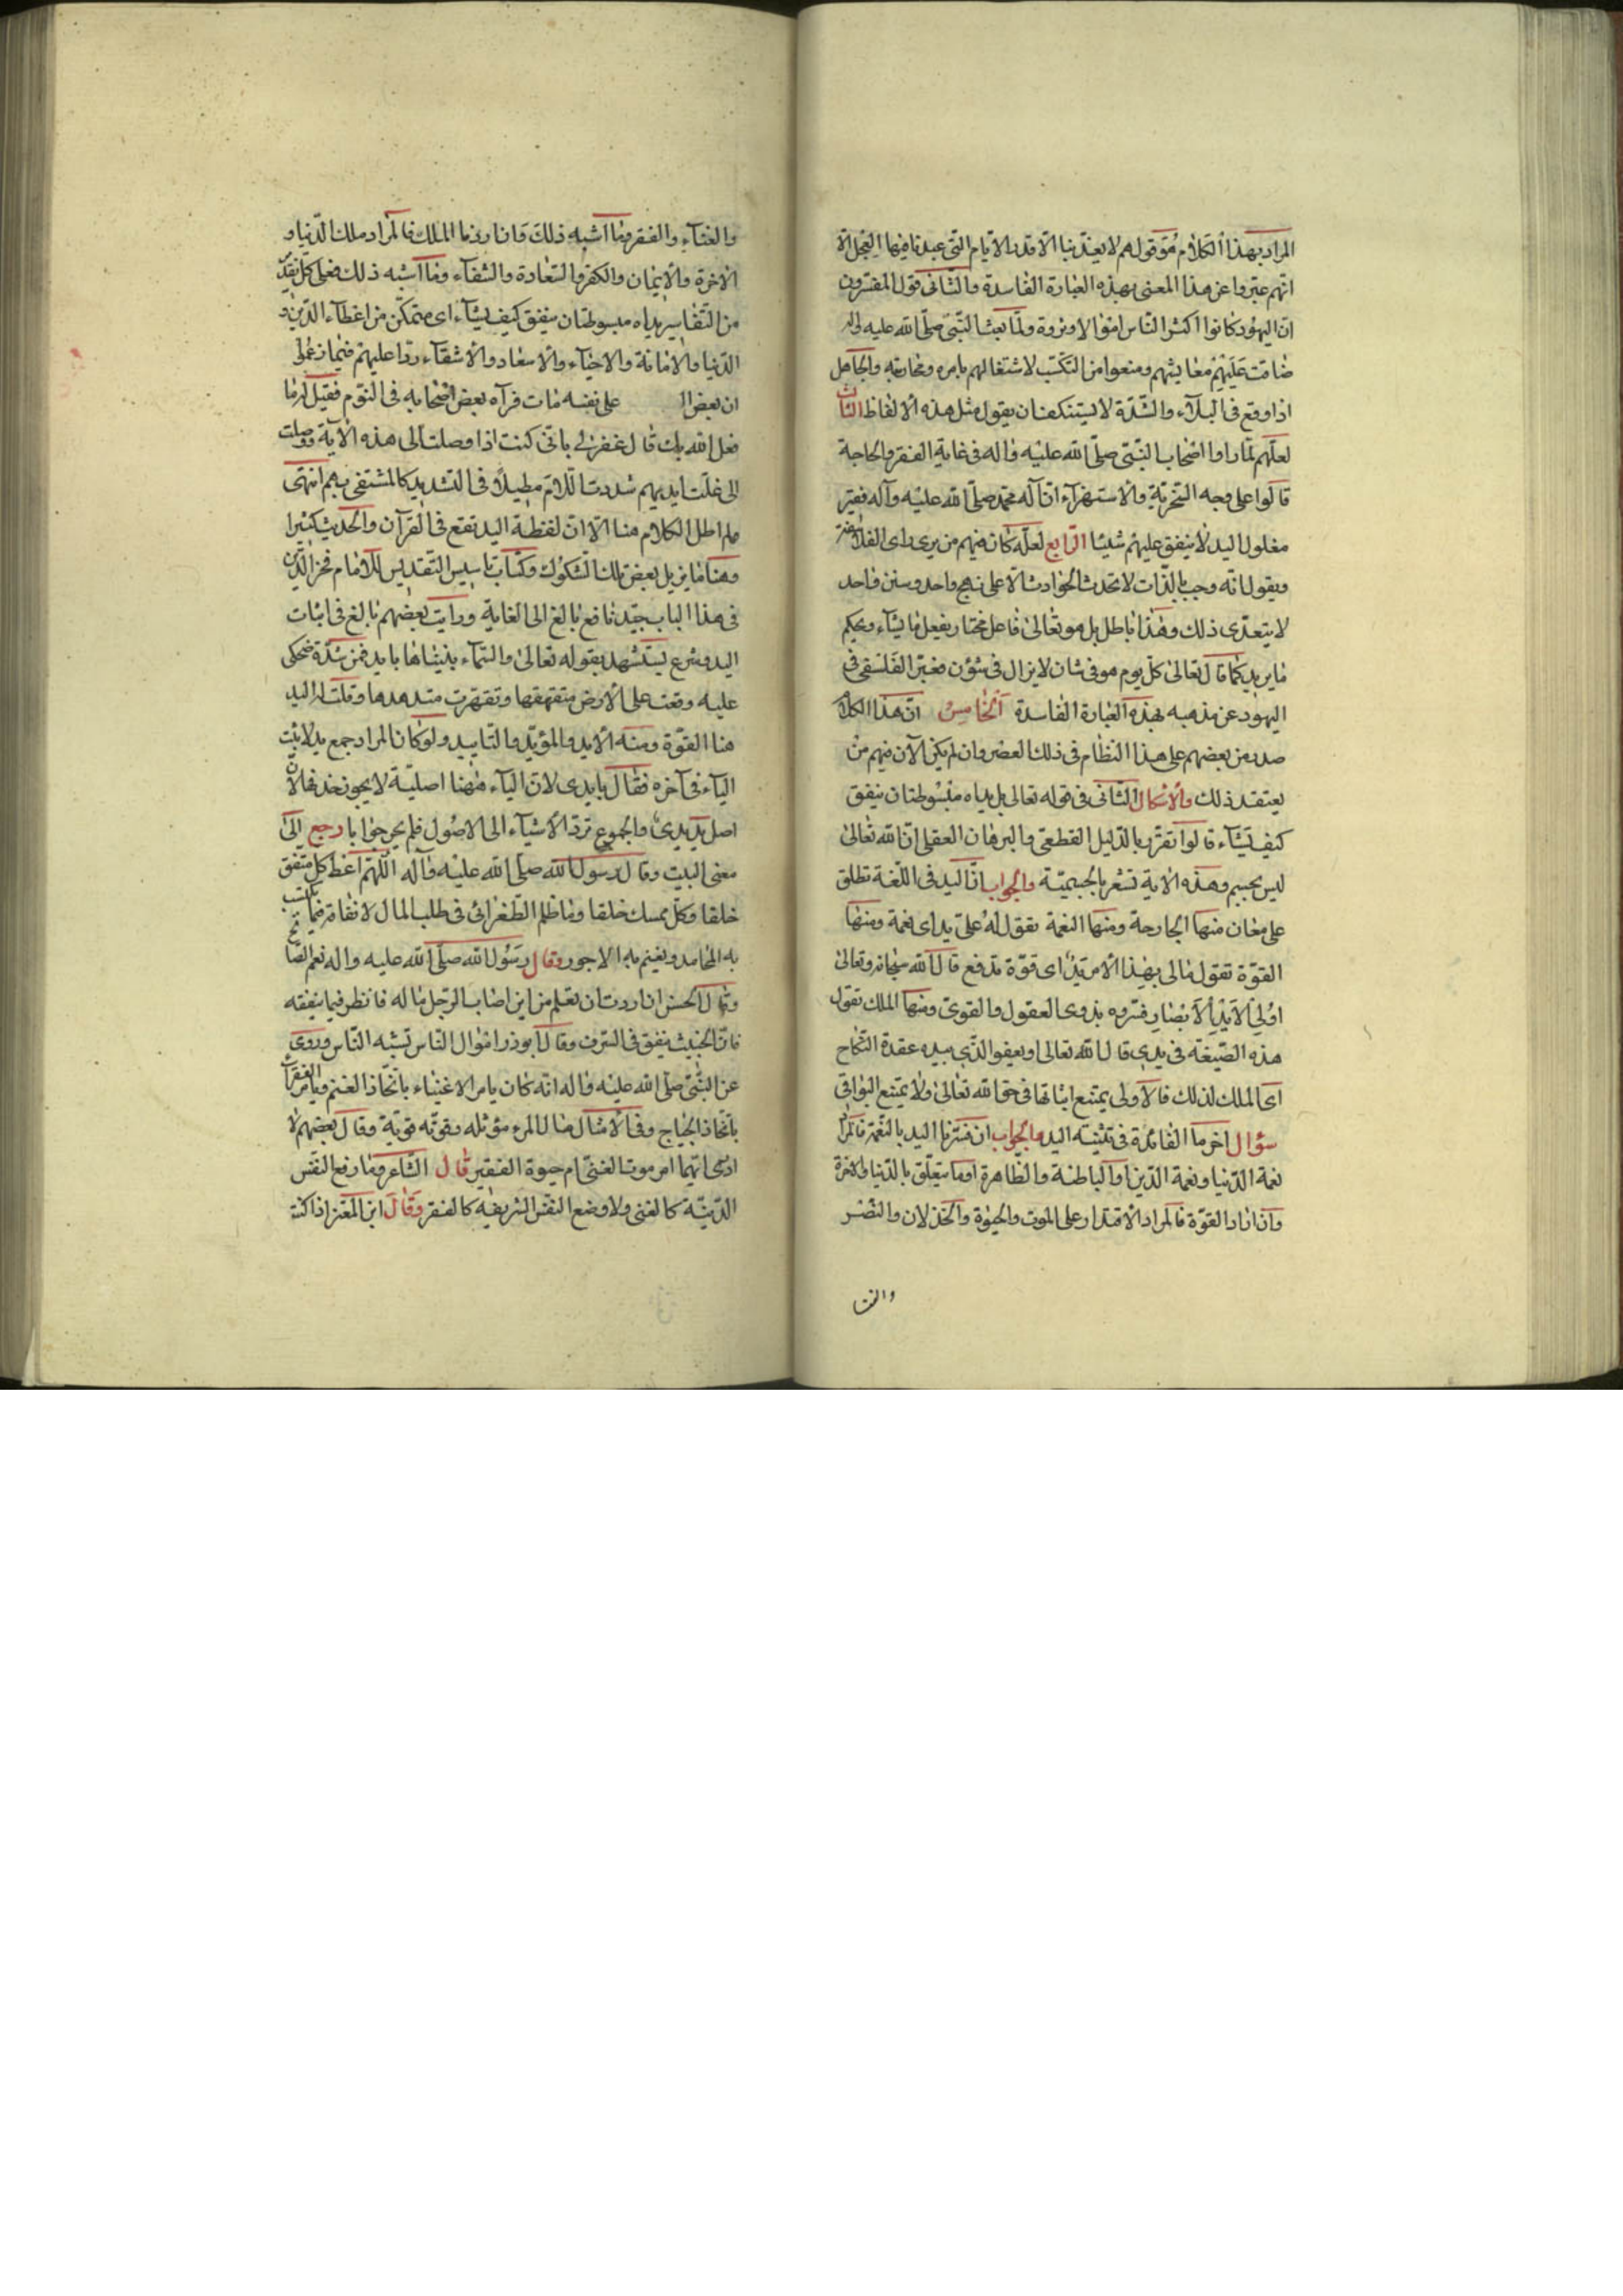 المراد بهذا الكلام هو قولهم لا يعذبنا الا قدر الايام التى عبدنا فيها العجل الا
انهم عبروا عن هذا المعنى بهذه العبارة الفاسدة والثانى قول المفسرون
ان اليهود كانوا اكثر الناس اموالا وثروة ولما بعث النبى صلى الله عليه واله
ضاقت عليهم معايشهم ومنعوا من التكسب لاشتغالهم بامره ومحاربته والجاهل
اذا وقع فى البلاء والشدة لا يستنكف ان يقول مثل هذه الالفاظ الثالث
لعلهم لما راوا اصحاب النبى صلى الله عليه واله فى غاية الفقر والحاجة
قالوا على وجه السخرية والاستهزاء ان آله محمد صلى الله عليه وآله فقير
مغلول اليد لا ينفق عليهم شيئا الرابع لعله كان فيهم من يرى راى الفلاسفة
ويقول انه وجب بالذات لا تحدث الحوادث الا على نهج واحد وسنن واحد
لا يتعدى ذلك وهذا باطل بل هو تعالى فاعل مختار يفعل ما يشاء ويحكم
ما يريد كما قال تعالى كل يوم هو فى شان لا يزال فى شؤن فعبر الفلسفى فى
اليهود عن مذهبه بهذه العبارة الفاسدة الخامس ان هذا الكلام
صدر من بعضهم على هذا النظام فى ذلك العصر وان لم يكن الآن فيهم من
يعتقد ذلك والاشكال الثانى فى قوله تعالى بل يداه مبسوطتان ينفق
كيف يشاء قالوا تقرر بالدليل القطعى والبرهان العقلى ان الله تعالى
ليس بجسم وهذه الاية تشعر بالجسمية والجواب ان اليد فى اللغة تطلق
على معان منها الجارحة ومنها النعمة تقول له على يد اى نعمة ومنها
القوة تقول مالى بهذا الامر يد اى قوة تدفع قال الله سبحانه وتعالى
اولى الايدى والابصار فسروه بذوى العقول والقوى ومنها الملك تقول
هذه الضيعة فى يدى قال الله تعالى او يعفو الذى بيده عقدة النكاح
اى المالك لذلك فالاولى يمتنع اثباتها فى حق الله تعالى ولا يمتنع البواقى
سؤال اخر ما الفائدة فى تثنية اليد والجواب ان فسرنا اليد بالنعمة فالمراد
نعمة الدنيا ونعمة الدين او الباطنة والظاهرة او ما يتعلق بالدنيا والاخرة
وان اراد القوة فالمراد الاقتدار على الموت والحيوة والخذلان والنصر
والغنا
والغناء والفقر وما اشبه ذلك وان اردنا الملك فالمراد ملك الدنيا و
الاخرة والايمان والكفر والسعادة والشقاء وما اشبه ذلك فعلى كل تقدير
من التفاسير يداه مبسوطتان ينفق كيف يشاء اى متمكن من اعطاء الدين و
الدنيا والاماتة والاحياء والاسعاد والاشقاء ردا عليهم فيما زعموا
ان بعض ال على نفسه مات فرآه بعض اصحابه فى النوم فقيل له ما
فعل الله بك قال غفر لى بانى كنت اذا وصلت الى هذه الآية ووصلت
الى غلت ايديهم شددت اللام مطيلا فى التشديد كالمشتفى بهم انتهى
ولم اطل الكلام هنا الا ان لفظة اليد تقع فى القرآن والحديث كثيرا
وهنا ما يزيل بعض تلك الشكوك وكتاب تاسيس التقديس للامام فخر الدين
فى هذا الباب جيد نافع بالغ الى الغاية ورايت بعضهم بالغ فى اثبات
اليد وشرع يستشهد بقوله تعالى والسماء بنيناها بايد فمن شدة ضحكى
عليه وقعت على الارض متقهقها وتقهقرت متدهدها وقلت له اليد
هنا القوة ومنه الايد والمؤيد والتاييد ولو كان المراد جمع يد لاثبت
الياء فى آخره فقال بايدى لان الياء ههنا اصلية لا يجوز حذفها لان
اصل يد يدى والجموع ترد الاشياء الى الاصول فلم يحر جوابا رجع الى
معنى البيت وقال رسول الله صلى الله عليه وآله اللهم اعط كل منفق
خلفا وكل ممسك تلفا وما ظلم الطغرائى فى طلب المال لانفاقه فيما يكتسب
به المحامد ويغنم به الاجور وقال رسول الله صلى الله عليه واله نعم المال الصالح
وقال الحسن ان اردت ان تعلم من اين اصاب الرجل ماله فانظر فيما ينفقه
فان الخبيث ينفق فى السرف وقال ابو ذر اموال الناس تشبه الناس وروى
عن النبى صلى الله عليه واله انه كان يامر الاغنياء باتخاذ الغنم ويامر الفقراء
باتخاذ الدجاج وفى الامثال مال المرء موئله وقوته قوية وقال بعضهم لا
ادرى ايهما امر موت الغنى ام حيوة الفقير قال الشاعر وما رفع النفس
الدنية كالغنى ولا وضع النفس الشريفة كالفقر وقال ابن المعتز اذا كنت